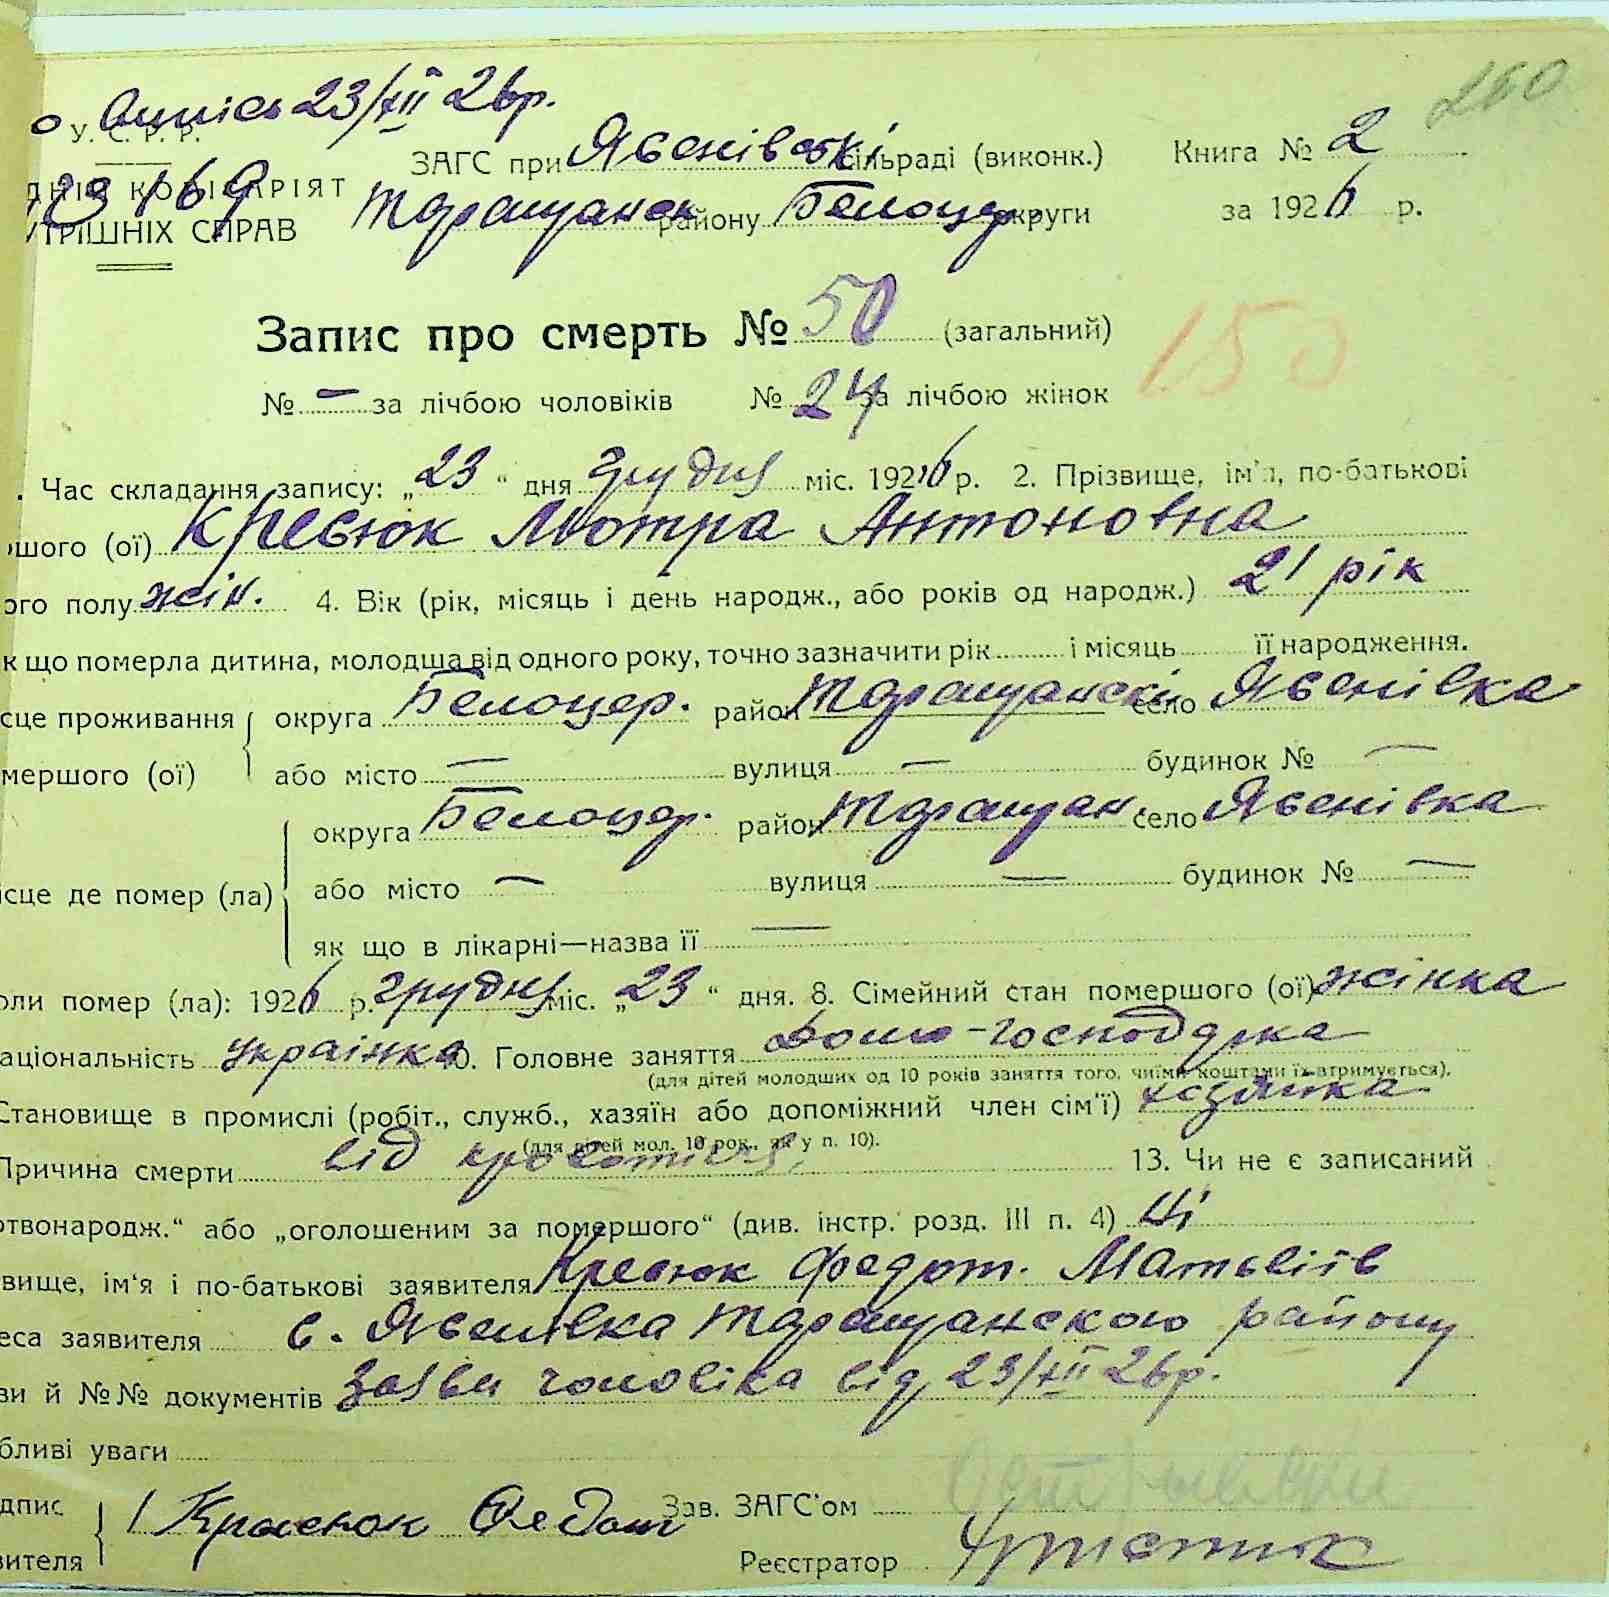 Випись 23/XII 26р.
250
У. С. Р. Р.
ЗАГС при Лѣсенівській сільраді (виконк.) Книга № 2
КОМІСАРІЯТ
169
ТРІШНІХ СПРАВ Таращанськ району Белоцер округи за 1926 р.
Запис про смерть № 50 (загальний)
150
№ — за лічбою чоловіків № 24 за лічбою жінок
. Час складання запису: „23“ дня грудня міс. 1926 р. 2. Прізвище, ім'я, по-батькові
шого (ої) Мотра Антоновна
ого полу жін. 4. Вік (рік, місяць і день народж., або років од народж.) 21 рік
к що померла дитина, молодша від одного року, точно зазначити рік і місяць її народження.
сце проживання округа Белоцер. район Таращанскі село
мершого (ої) або місто — вулиця — будинок № —
округа Белоцер. район Таращан. село
ісце де помер (ла) або місто — вулиця — будинок № —
як що в лікарні—назва її —
оли помер (ла): 1926 р. грудня міс. „23“ дня. 8. Сімейний стан помершого (ої) жінка
аціональність українка 10. Головне заняття домо-господарка
(для дітей молодших од 10 років заняття того, чиїми коштами їх втримується).
Становище в промислі (робіт., служб., хазяїн або допоміжний член сім'ї) хазяйка
(для дітей мол. 10 рок., як у п. 10).
Причина смерти від 13. Чи не є записаний
ртвонародж.“ або „оголошеним за помершого“ (див. інстр. розд. III п. 4) Ні
вище, ім'я і по-батькові заявителя Федот. Матвіїв
еса заявителя с. Таращанского району
ви й №№ документів Заяви чоловіка від 23/XII 26р.
бливі уваги
дпис Федот Зав. ЗАГС'ом
вителя Реєстратор